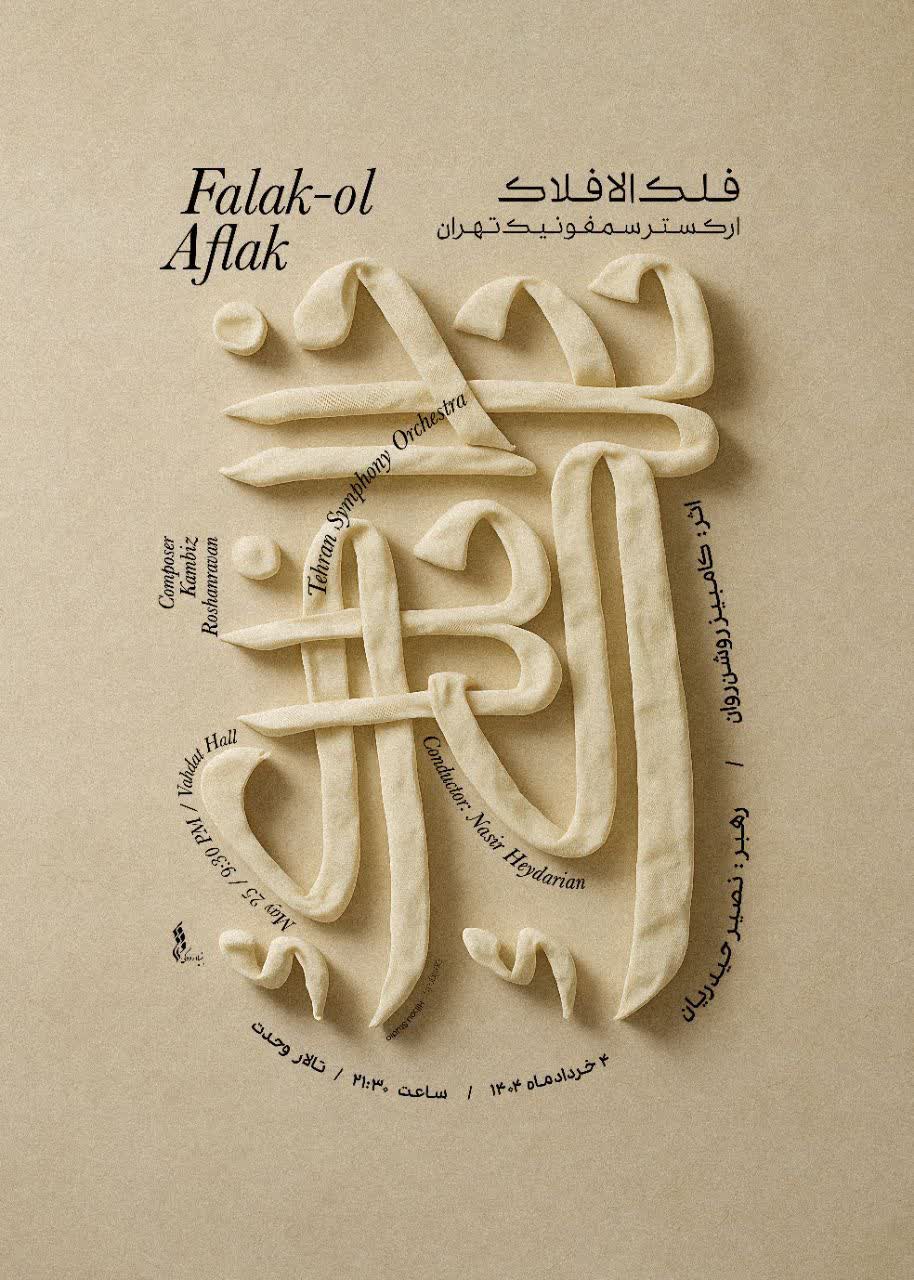 Falak-ol
Aflak
فلک الافلاک
ارکستر سمفونیک تهران
Tehran Symphony Orchestra
Composer
Kambiz
Roshanravan
اثر: کامبیز روشن‌روان / رهبر: نصیر حیدریان
Conductor: Nasir Heydarian
May 25 / 9:30 PM / Vahdat Hall
بنیاد رودکی
۴ خردادماه ۱۴۰۴ / ساعت ۲۱:۳۰ / تالار وحدت